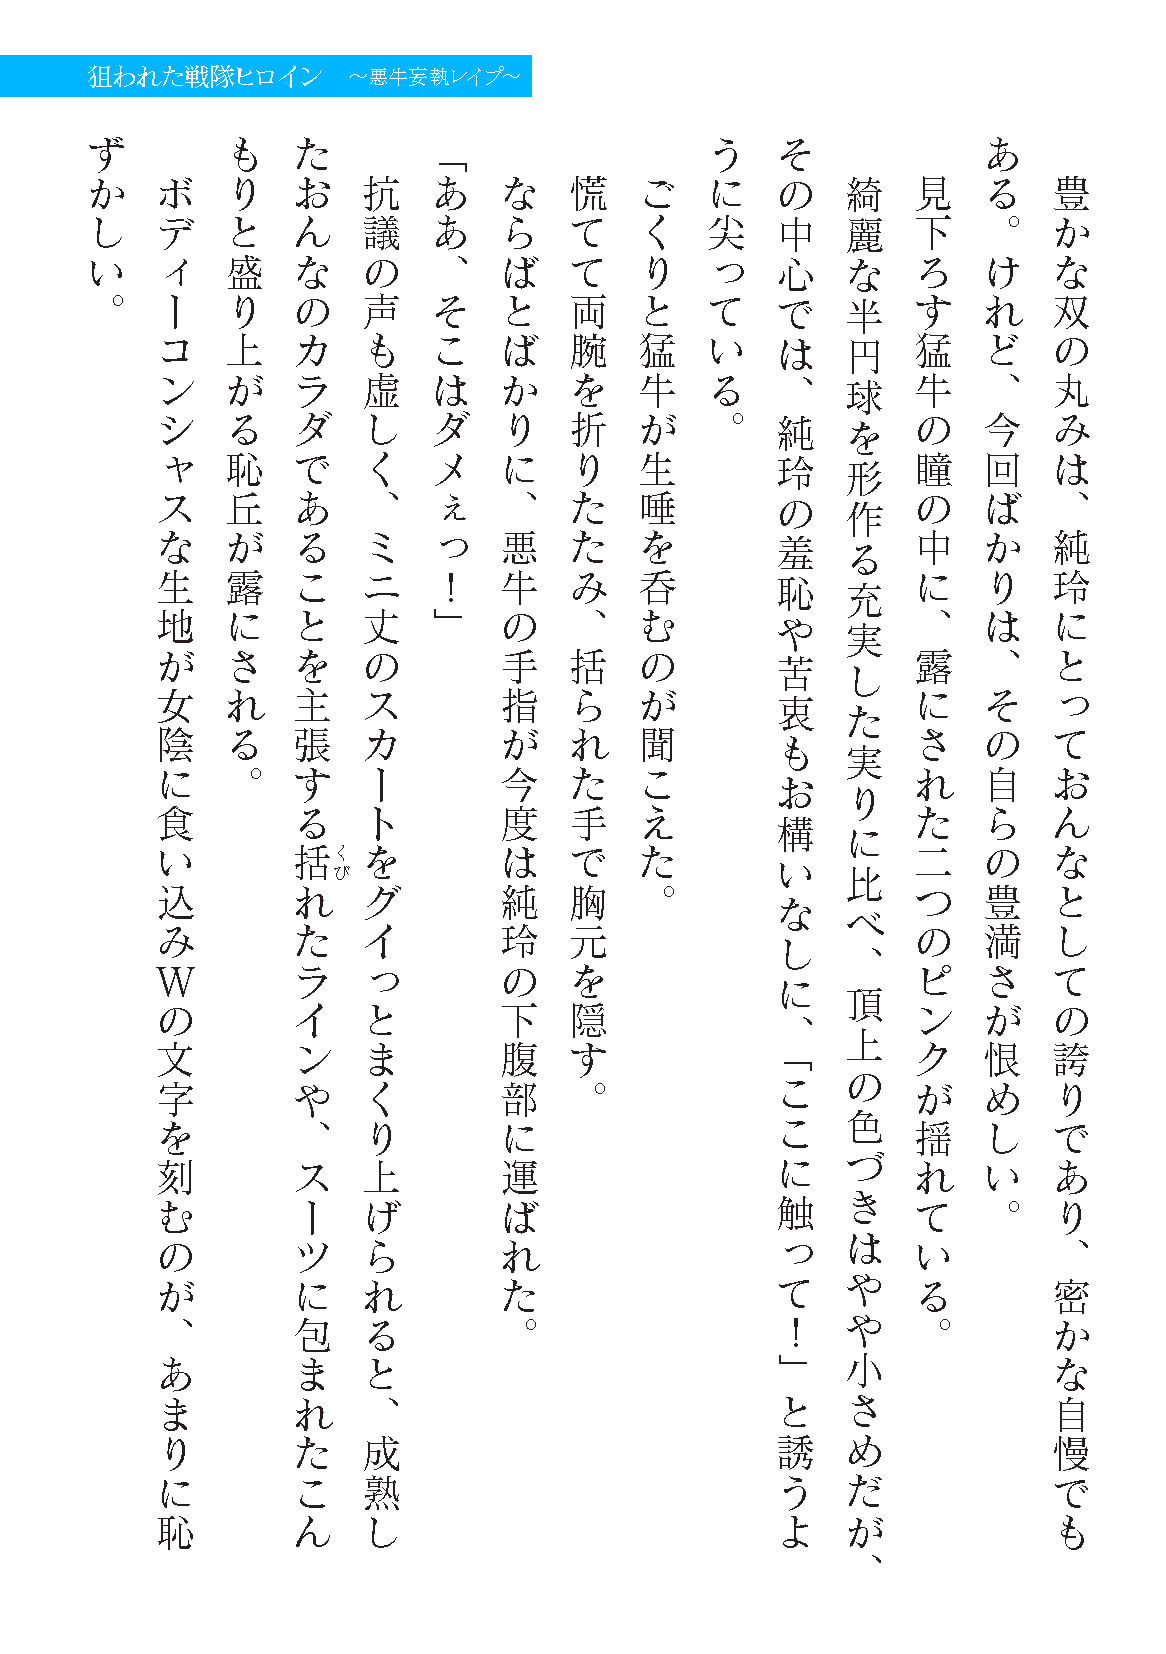 狙われた戦隊ヒロイン　～悪牛妄執レイプ～
　豊かな双の丸みは、純玲にとっておんなとしての誇りであり、密かな自慢でも
ある。けれど、今回ばかりは、その自らの豊満さが恨めしい。
　見下ろす猛牛の瞳の中に、露にされた二つのピンクが揺れている。
　綺麗な半円球を形作る充実した実りに比べ、頂上の色づきはやや小さめだが、
その中心では、純玲の羞恥や苦衷もお構いなしに、「ここに触って！」と誘うよ
うに尖っている。
　ごくりと猛牛が生唾を呑むのが聞こえた。
　慌てて両腕を折りたたみ、括られた手で胸元を隠す。
　ならばとばかりに、悪牛の手指が今度は純玲の下腹部に運ばれた。
「ああ、そこはダメぇっ！」
　抗議の声も虚しく、ミニ丈のスカートをグイっとまくり上げられると、成熟し
たおんなのカラダであることを主張する括くびれたラインや、スーツに包まれたこん
もりと盛り上がる恥丘が露にされる。
　ボディーコンシャスな生地が女陰に食い込みＷの文字を刻むのが、あまりに恥
ずかしい。